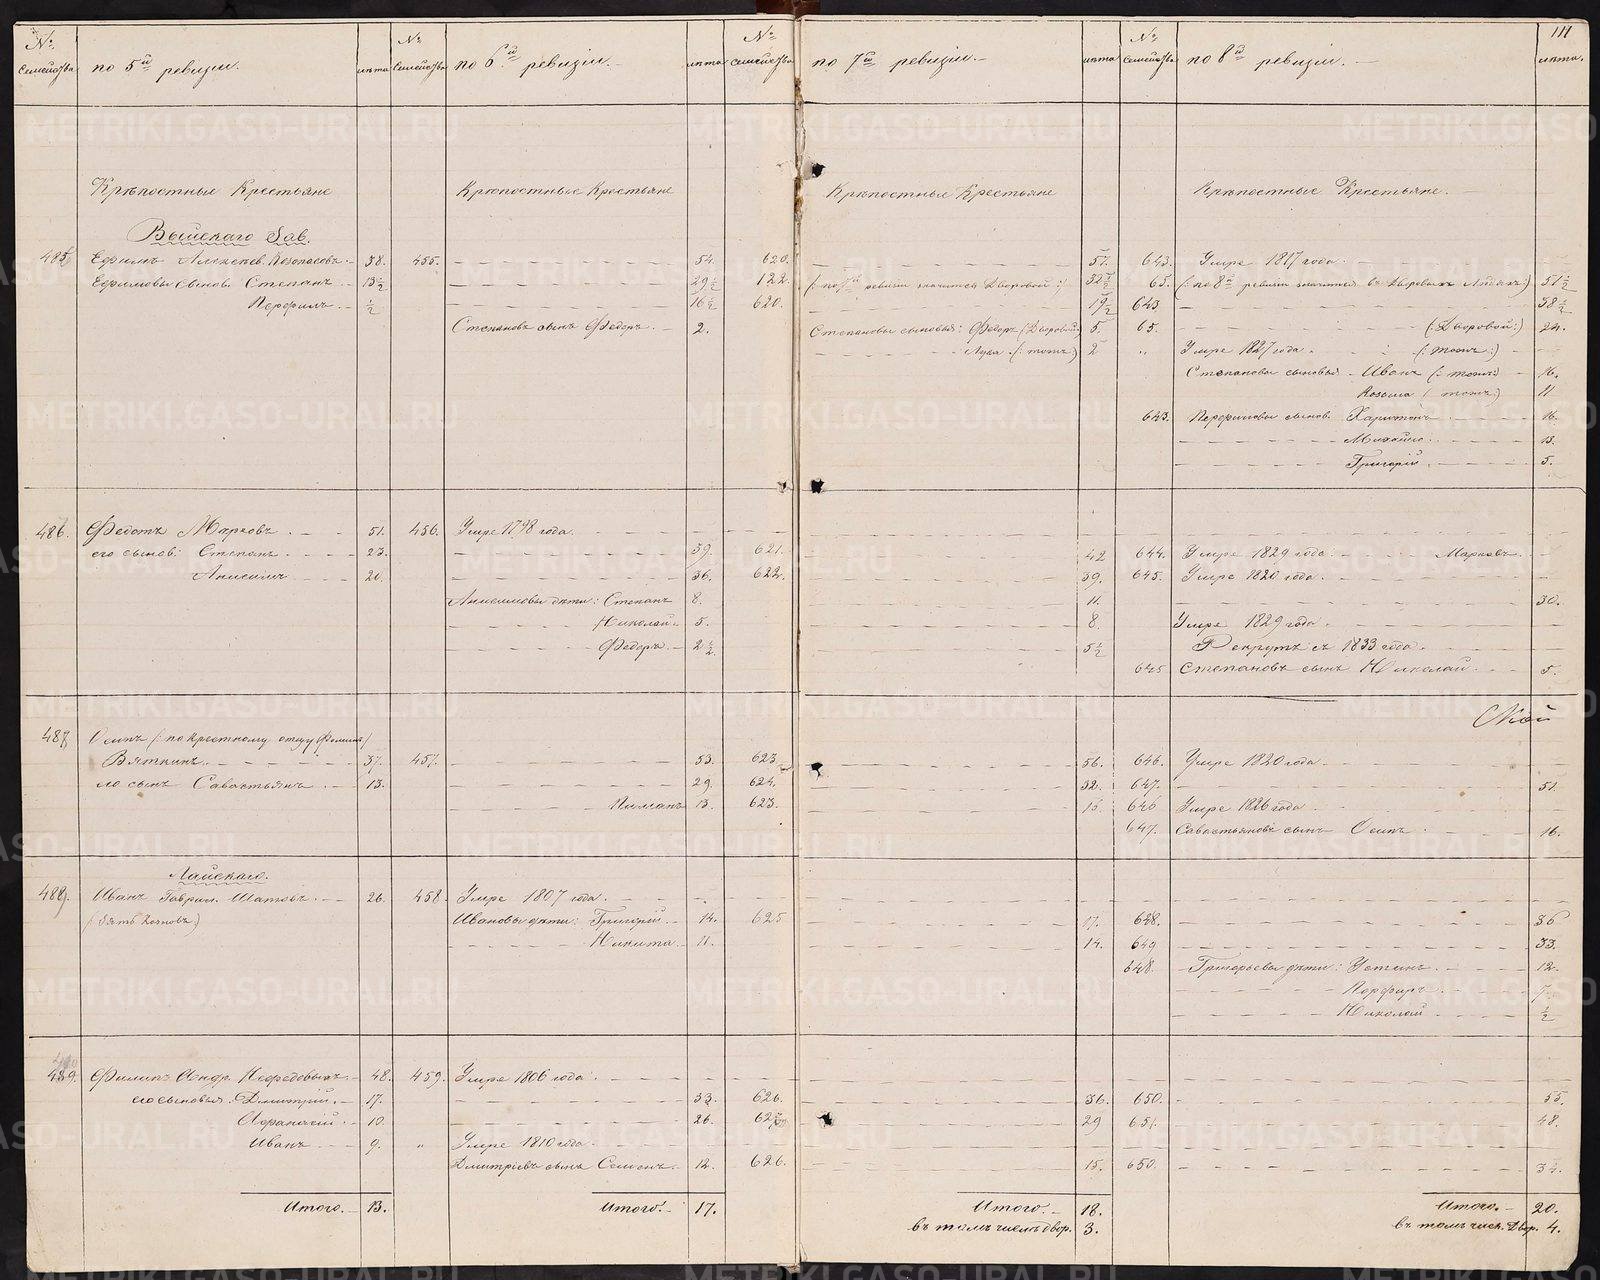 № семейства по 5й ревизіи. лѣта № семейства по 6й ревизіи. лѣта № семейства по 7й ревизіи. лѣта № семейства по 8й ревизіи. 111 лѣта.
Крѣпостные Крестьяне Крѣпостные Крестьяне Крѣпостные Крестьяне Крѣпостные Крестьяне.
Выйскаго Зав.
485 Ефимъ Алексѣев. 38. 455. 54. 620. 57. 643. Умре 1817 года.
Ефимовы сынов. Степанъ 13½ 29½ 122. (: по 7й ревизіи значится Дворовой :) 32½ 65. (: по 8й ревизіи значится въ Дворовыхъ Людяхъ :) 51½
Перфилъ ½ 16½ 620. 19½ 643 38½
Степановъ сынъ Федоръ. 2. Степановы сыновья: Федоръ (Дворовой:) 5. 65. (: Дворовой :) 24.
Лука (: тожъ :) 2 „ Умре 1827 года. (: тожъ :)
Степановы сыновья Иванъ (: тожъ :) 16.
Козьма (: тожъ :) 11
643. Перфиловы сынов. Харитонъ 16.
Михайло 13.
Григорій 5.
486. Федотъ Марковъ. 51. 456. Умре 1798 года.
его сынов: Степанъ. 23. 39. 621. 42 644. Умре 1829 года. Марковъ.
Анисимъ 20. 36. 622. 39. 645. Умре 1820 года.
Анисимовы дѣти: Степанъ 8. 11. 30.
Николай. 5. 8. Умре 1829 года.
Федоръ. 2½ 5½ Рекрутъ съ 1833 года.
645 Степановъ сынъ Николай. 5.
487. Осипъ (: по крестному отцу Фоминъ)
Вяткинъ. 37. 457. 53. 623. 56. 646. Умре 1820 года.
его сынъ Савастьянъ 13. 29. 624. 32. 647. 51.
Пиманъ 13. 623. 15. 646 Умре 1826 года
647. Савастьяновъ сынъ Осипъ 16.
Лайскаго.
488. Иванъ Гаврил. Шатовъ. 26. 458. Умре 1807 года.
Ивановы дѣти: Григорій 14. 625 17. 648. 36
Никита. 11. 14. 649 33.
648. Григорьевы дѣти: Устинъ. 12.
Порфиръ 7.
Николай ½
489. Филипъ Андр. Нефедовыхъ 48. 459. Умре 1806 года.
его сыновья: Дмитрій. 17. 33. 626. 36. 650. 55.
10. 26. 627. 29 651. 48.
Иванъ 9. „ Умре 1810 года.
Дмитріевъ сынъ Семенъ. 12. 626. 15. 650. 34.
Итого. 13. Итого. 17. Итого. 18. Итого. 20.
въ томъ числѣ двор. 3. въ томъ числ. Двор. 4.
METRIKI.GASO-URAL.RU